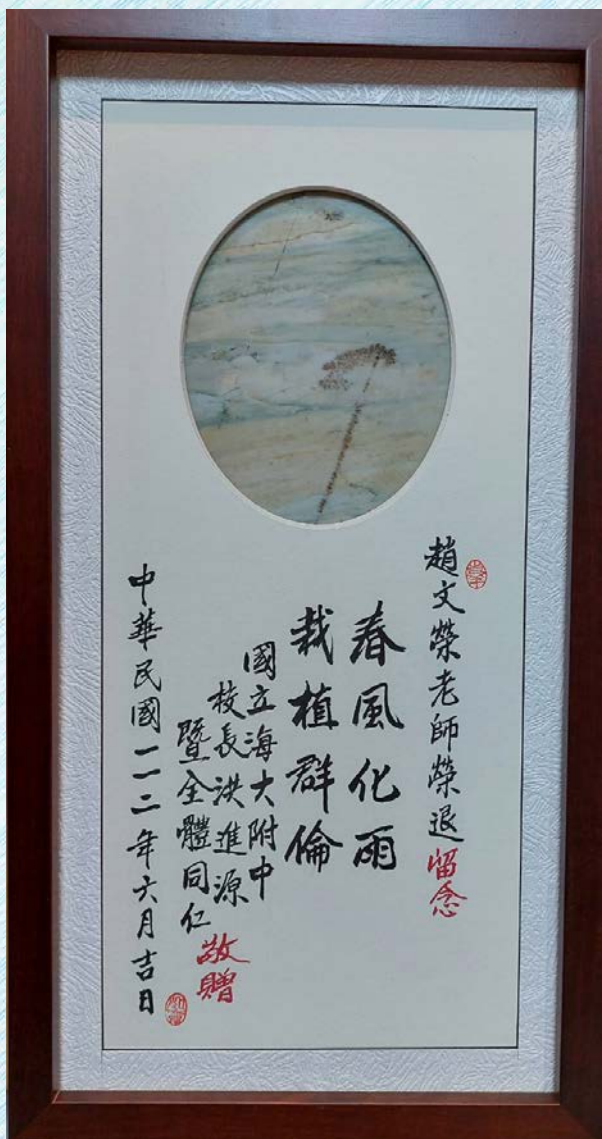 趙文榮老師榮退留念
春風化雨
栽植群倫
國立海大附中
校長洪進源
暨全體同仁
敬贈
中華民國一一二年六月吉日